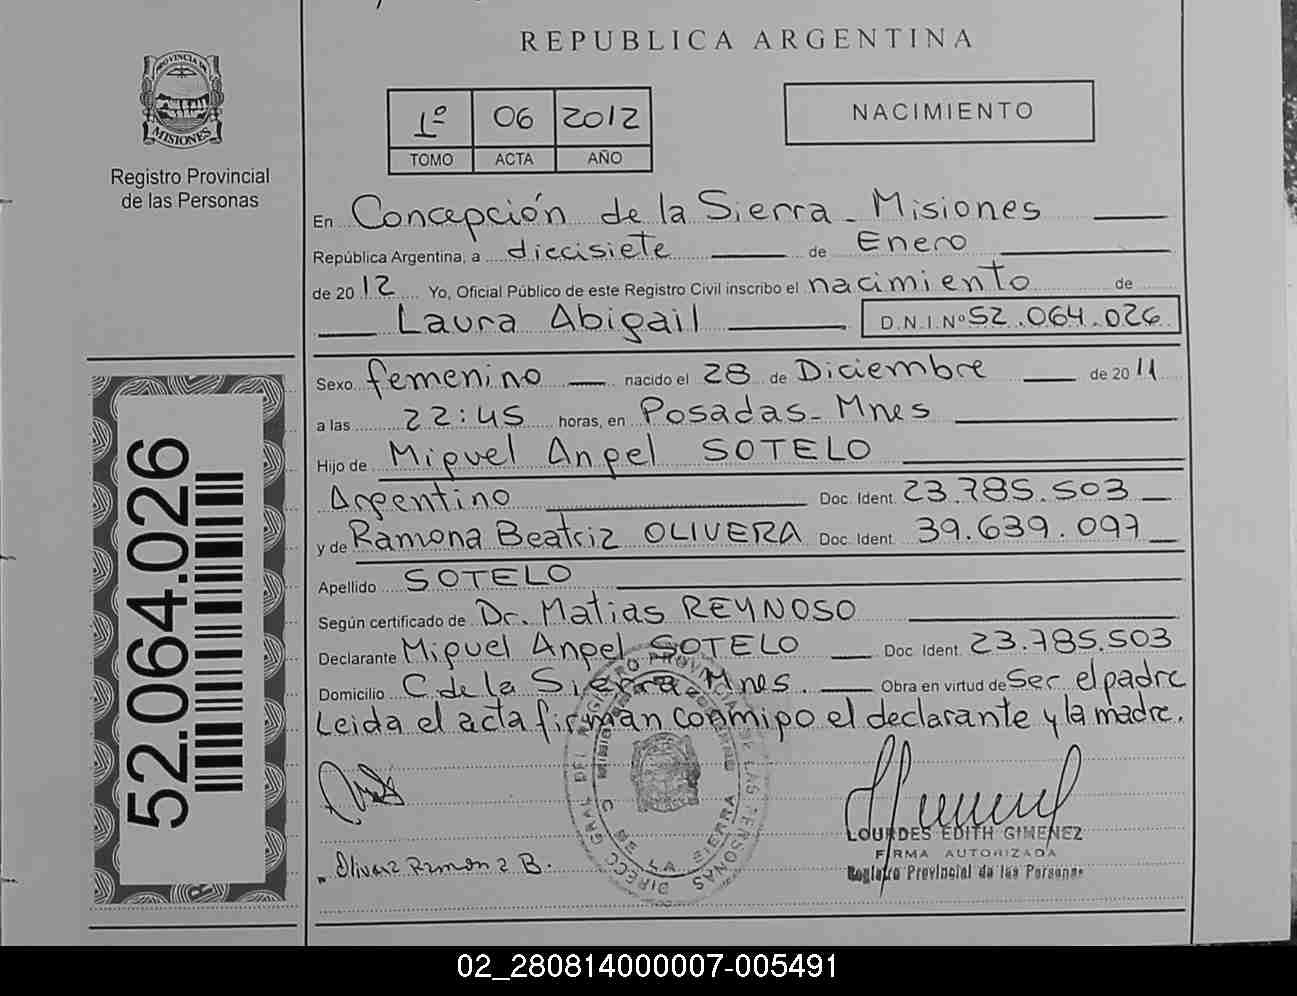 REPUBLICA ARGENTINA
PROVINCIA DE
MISIONES
Registro Provincial
de las Personas
1º 06 2012
TOMO ACTA AÑO
NACIMIENTO
En Concepción de la Sierra - Misiones
República Argentina, a diecisiete de Enero
de 2012 Yo, Oficial Público de este Registro Civil inscribo el nacimiento de
Laura Abigail D.N.I. Nº 52.064.026
Sexo femenino nacido el 28 de Diciembre de 2011
a las 22:45 horas, en Posadas - Mnes
Hijo de Miguel Angel SOTELO
Argentino Doc. Ident. 23.785.503
y de Ramona Beatriz OLIVERA Doc. Ident. 39.639.097
Apellido SOTELO
Según certificado de Dr. Matias REYNOSO
Declarante Miguel Angel SOTELO Doc. Ident. 23.785.503
Domicilio C. de la Sierra - Mnes. Obra en virtud de Ser el padre
Leida el acta firman conmigo el declarante y la madre.
52.064.026
DIRECC. GRAL. DEL REGISTRO PROVINCIAL DE LAS PERSONAS
C. DE LA SIERRA
Olivera Ramona B.
LOURDES EDITH GIMENEZ
FIRMA AUTORIZADA
Registro Provincial de las Personas
02_280814000007-005491